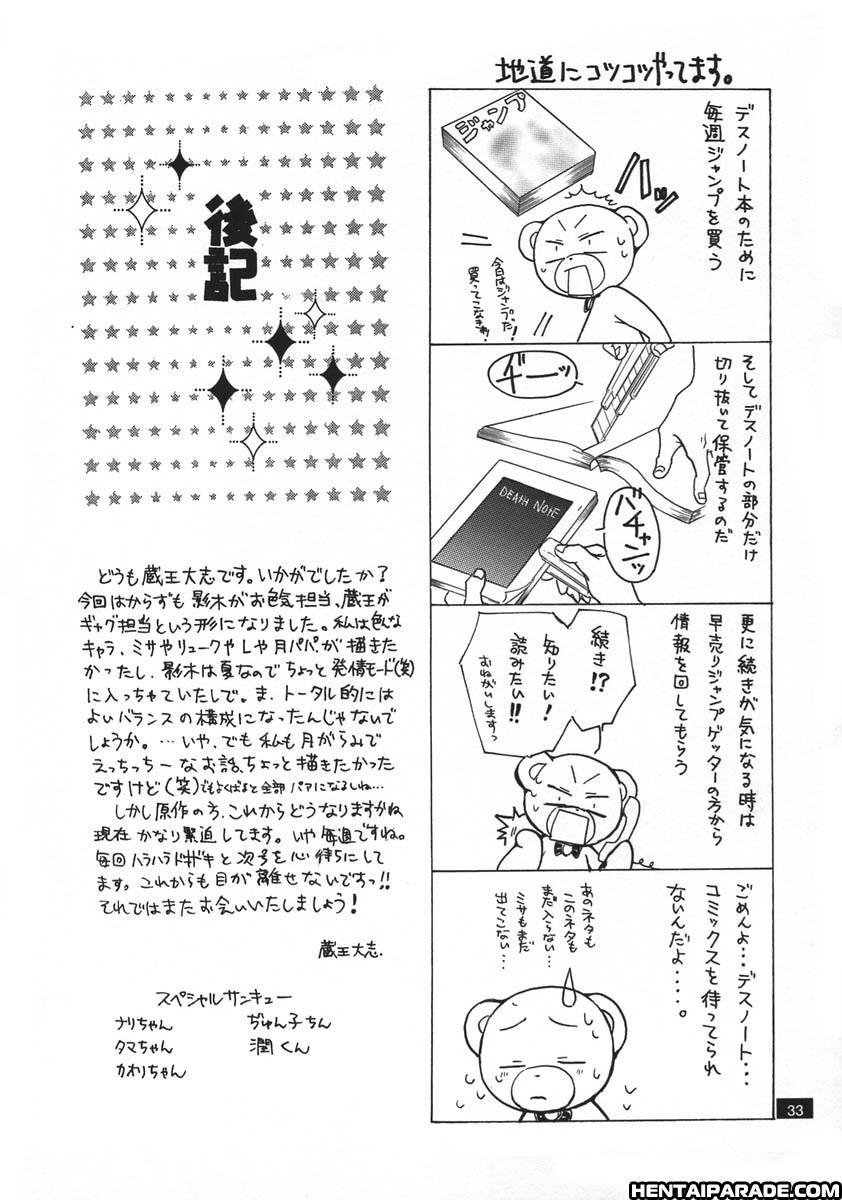 地道にコツコツやってます。
デスノート本のために
毎週ジャンプを買う
ジャンプ
バッ
今日はジャンプだ!
買ってこなきゃ!
そしてデスノートの部分だけ
切り抜いて保管するのだ
ギーッ
DEATH NOTE
バチャンッ
更に続きが気になる時は
早売りジャンプゲッターの方から
情報を回してもらう
続き!?
知りたい!
読みたい!!
おねがいしますっ
ごめんよ…デスノート…
コミックスを待ってられ
ないんだよ・・・・。
あのネタも
このネタも
まだ入らない…
ミサもまだ
出てこない…
後記
どうも蔵王大志です。いかがでしたか?
今回はからずも影木がお色気担当、蔵王が
ギャグ担当という形になりました。私は色んな
キャラ、ミサやリュークやLや月パパが描きた
かったし、影木は夏なのでちょっと発情モード(笑)
に入っちゃていたしで。ま、トータル的には
よいバランスの構成になったんじゃないで
しょうか。…いや、でも私も月がらみで
えっちっちーなお話、ちょっと描きたかった
ですけど(笑)でもよくばると全部パアになるしね…
しかし原作の方、これからどうなりますかね
現在かなり緊迫してます。いや毎週ですね。
毎回ハラハラドキドキと次号を心待ちにして
ます。これからも目が離せないですっ!!
それではまたお会いいたしましょう!
蔵王大志.
スペシャルサンキュー
ナリちゃん ぢゅん子ちん
タマちゃん 潤くん
かおりちゃん
33
HENTAIPARADE.COM